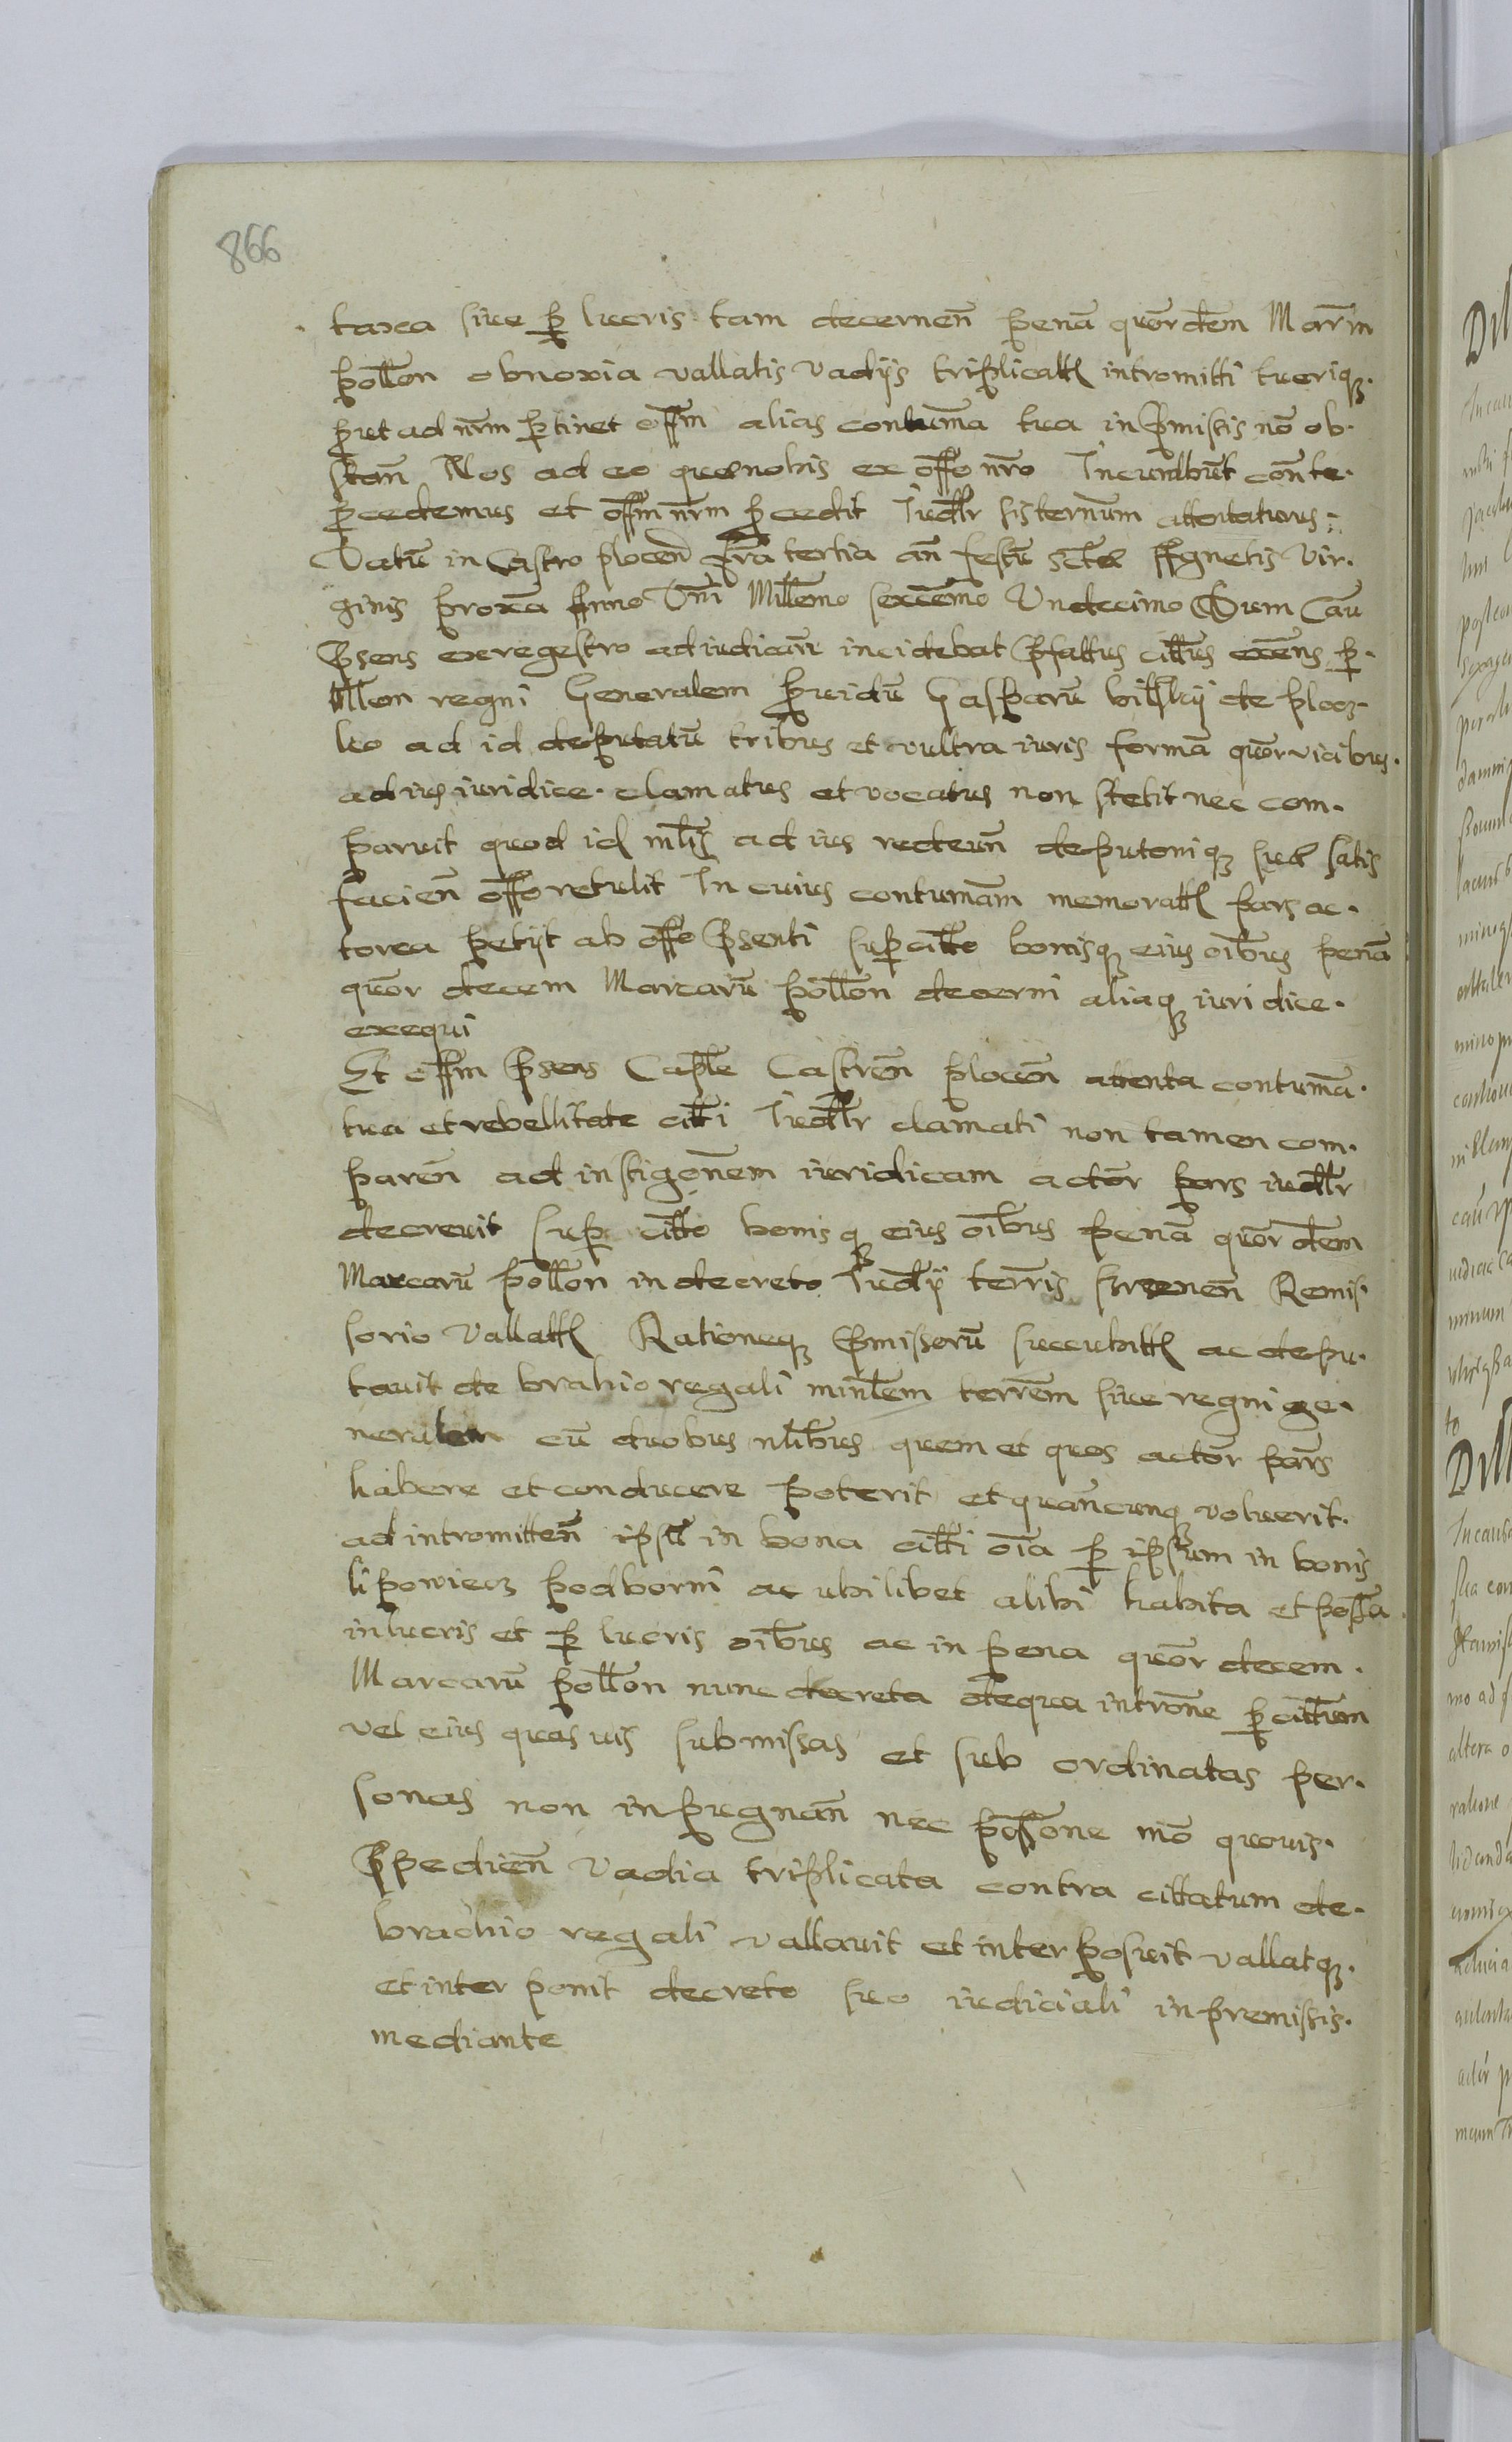 866
taxa siue p̱ lucris tam decernen̄ penā quor̄ dem̄ Mar̄m
pollon̄ obnoxia vallatis vadijs triplicatt intromitti tueriqꝫ
prut ad nr̄m p̱tinet off̄m alias contum̄a tua in p̄mistis nō ob.
stan̄ Nos ad eo que nobis ex off̄o nr̄o Incumbūt con̄te.
p̱cedemus et off̄m nr̄m p̱cedit Iudllr sisternum attentaturus
Datū in Castro plocen̄ fr̄ia tertia an̄ festū sctæ Agnetis Vir.
ginis prox̄a Anno Dn̄i Millemo sexcēmo Vndecimo Dum Cau
p̄sens ex regestro ad iudican̄ incidebat p̄fattus cittus exēns p̱
Mllem regni Generalem p̱uidū Gasparū de plocz.
ko ad id deputatū tribus et vultra iuris formā quor̄ vicibus.
ad ius iuridice clamatus et vocatus non stetit nec com.
paruit quod id mlis ad ius redeun̄ deputoniqꝫ suæ satis
facien̄ off̄o retulit In cuius contumām memoratt pars ac.
torea petijt ab off̄o p̄senti sup̱ citto bonisqꝫ eius oīb̄us penā
quor̄ decem Marcarū pollon̄ decerni aliaqꝫ iuridice.
exequi
Et off̄m p̄sens Capl̄e Castren̄ plocen̄ attenta contum̄a.
tua et rebellitate citti Iudllr clamati non tamen com.
paren̄ ad instigon̄em iuridicam actor̄ pars iudllr
decreuit sup̱ citto bonisqꝫ eius oīb̄us penā quor̄ dem̄
Marcarū pollon̄ in decreto Iudij terrīs Remis.
sorio Vallatt Rationeqꝫ p̄missorū succubitt ac depu.
tauit de brahio regali minlem terrēm siue regni ge.
neralem cū duobus nlib̄us quem et quos actor̄ par̄s
habere et conducere poterit et quāncunqꝫ voluerit.
ad intromitten̄ ipsū in bona citti oīa p̱ ipsum in bonis
lipowiecz podborni ac ubilibet alibi habita et poss̄a.
in lucris et p̱ lucris oīb̄us ac in pena quor̄ decem.
Marcarū pollon̄ nunc decreta de qua introne p̱ cittum
vel eius quasuis submissas et sub ordinatas per.
sonas non inpugnan̄ nec poss̄one mō quouis.
p̄pedien̄ Vadia triplicata contra cittatum de.
brachio regali vallauit et interposuit vallatqꝫ.
et inter ponit decreto suo iudiciali in premistis.
mediante